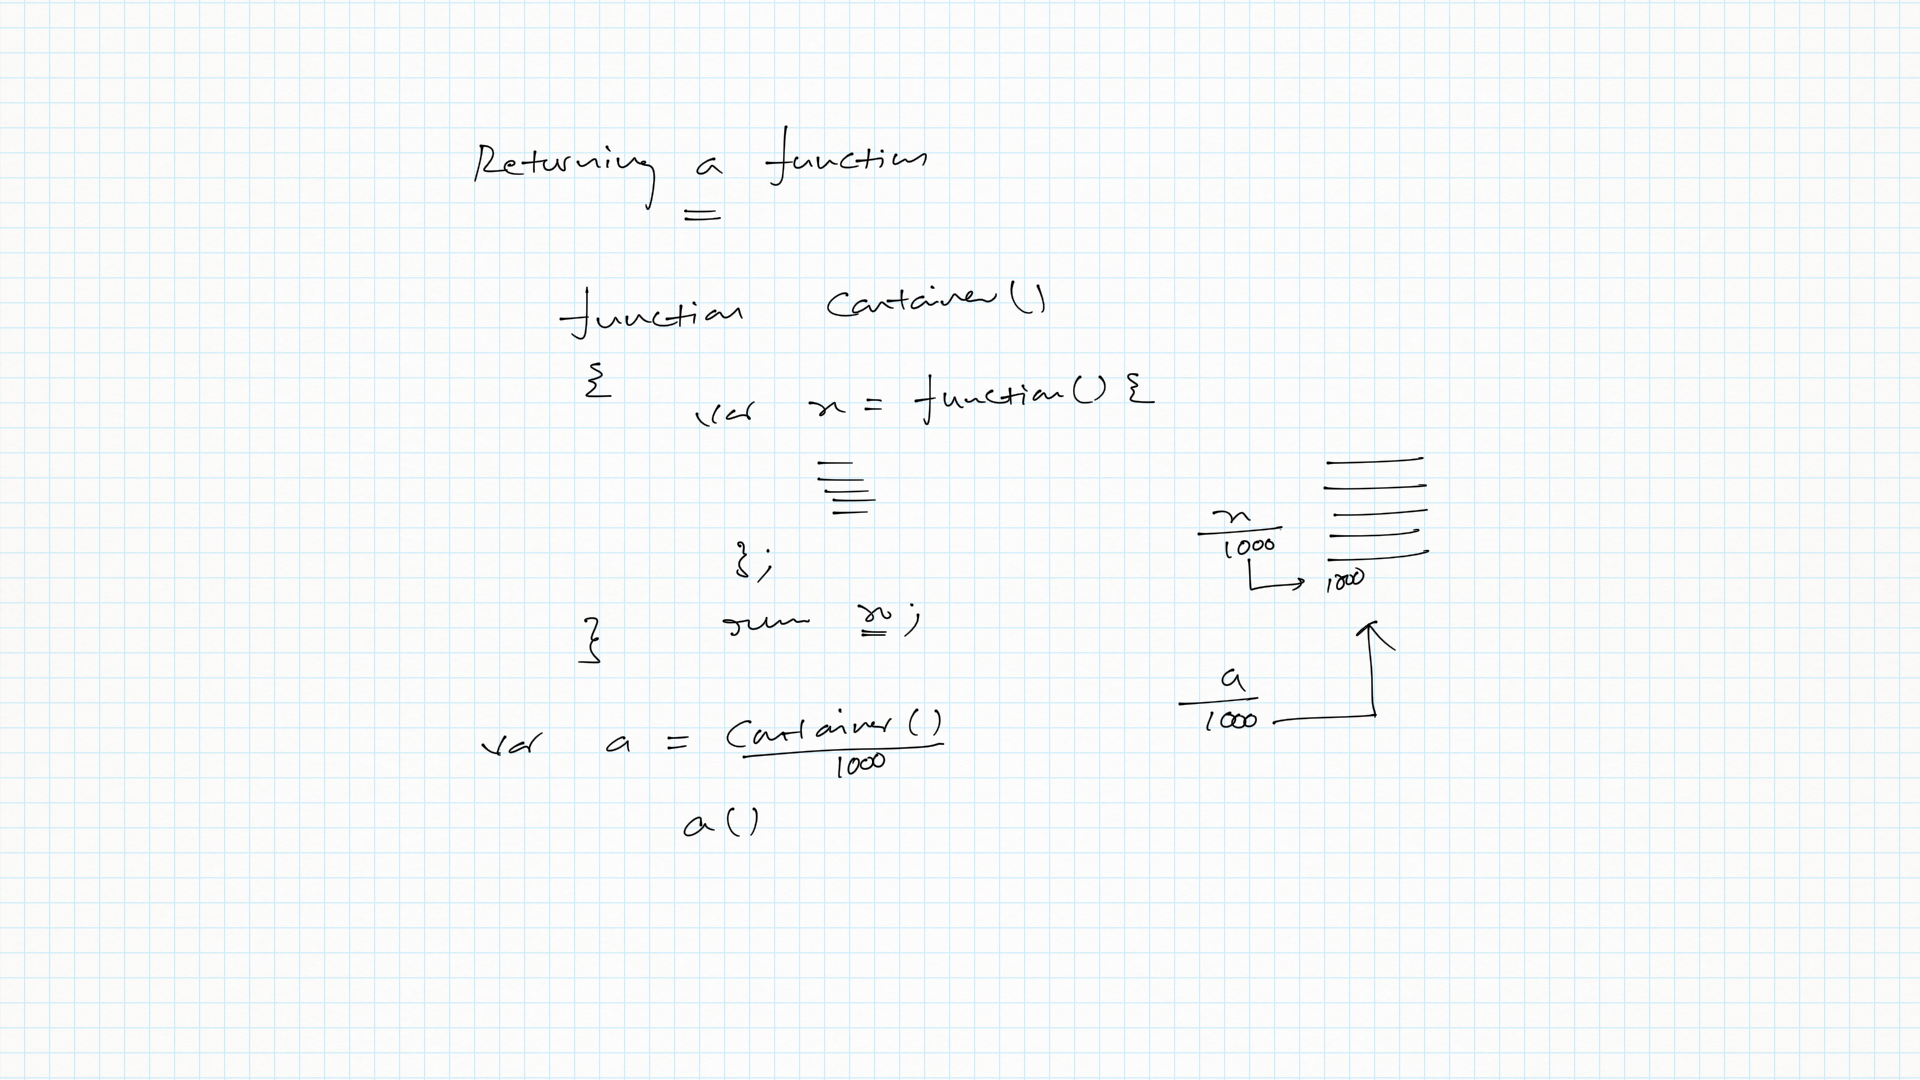 Returning a function
function Container()
{
var x = function() {
};
x;
}
var a = Container()
1000
a()
x
1000
1000
a
1000